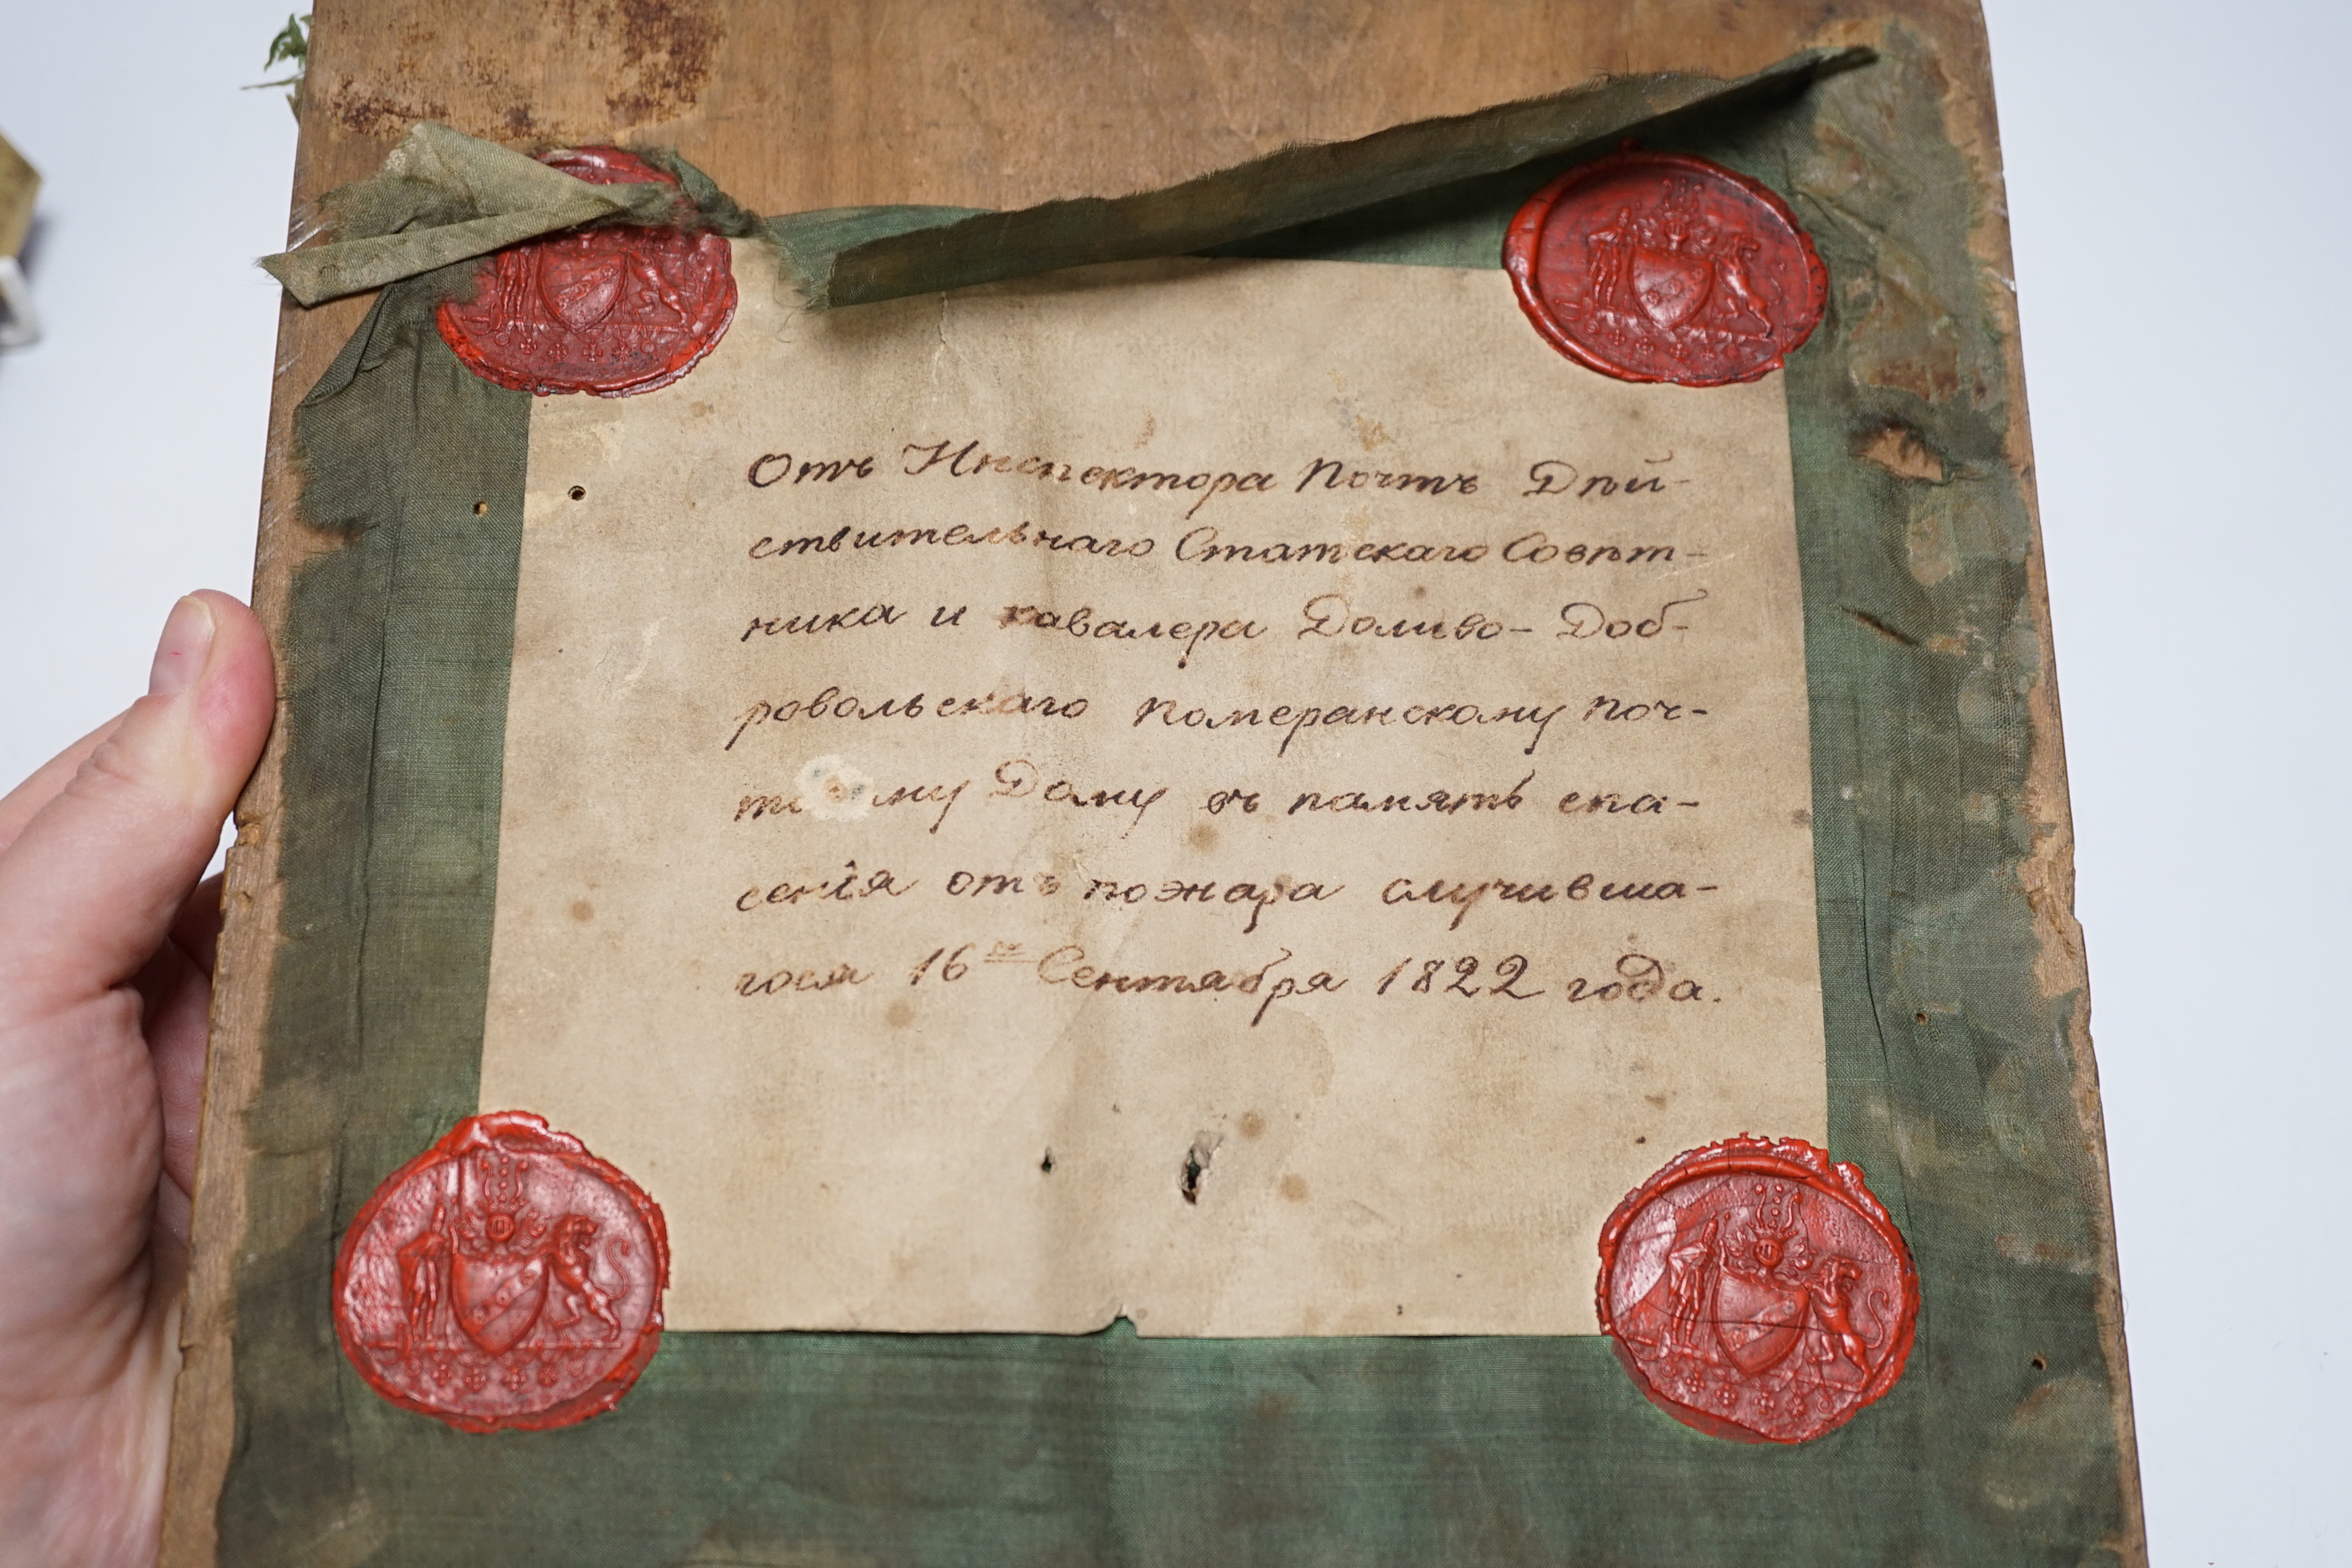 Отъ Инспектора Почтъ Дѣй-
ствительнаго Статскаго Совѣт-
ника и кавалера Доливо-Доб-
ровольскаго Померанскому поч-
Дому въ память спа-
сенія отъ пожара случивша-
гося 16го Сентября 1822 года.